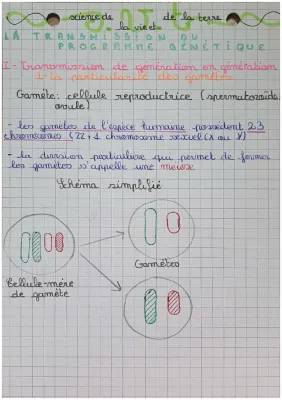 S.V.T
science de la vie et de la terre
LA TRANSMISSION DU
PROGRAMME GÉNÉTIQUE
I - Transmission de génération en génération
1 - la particularité des gamètes
Gamète: cellule reproductrice (spermatozoïde,
ovule)
- les gamètes de l'espèce humaine possèdent 23
chromosomes (22 + 1 chromosome sexuel (X ou Y)
- la division particulière qui permet de former
les gamètes s'appelle une meiose
Schéma simplifié
Gamètes
Cellule-mère
de gamète